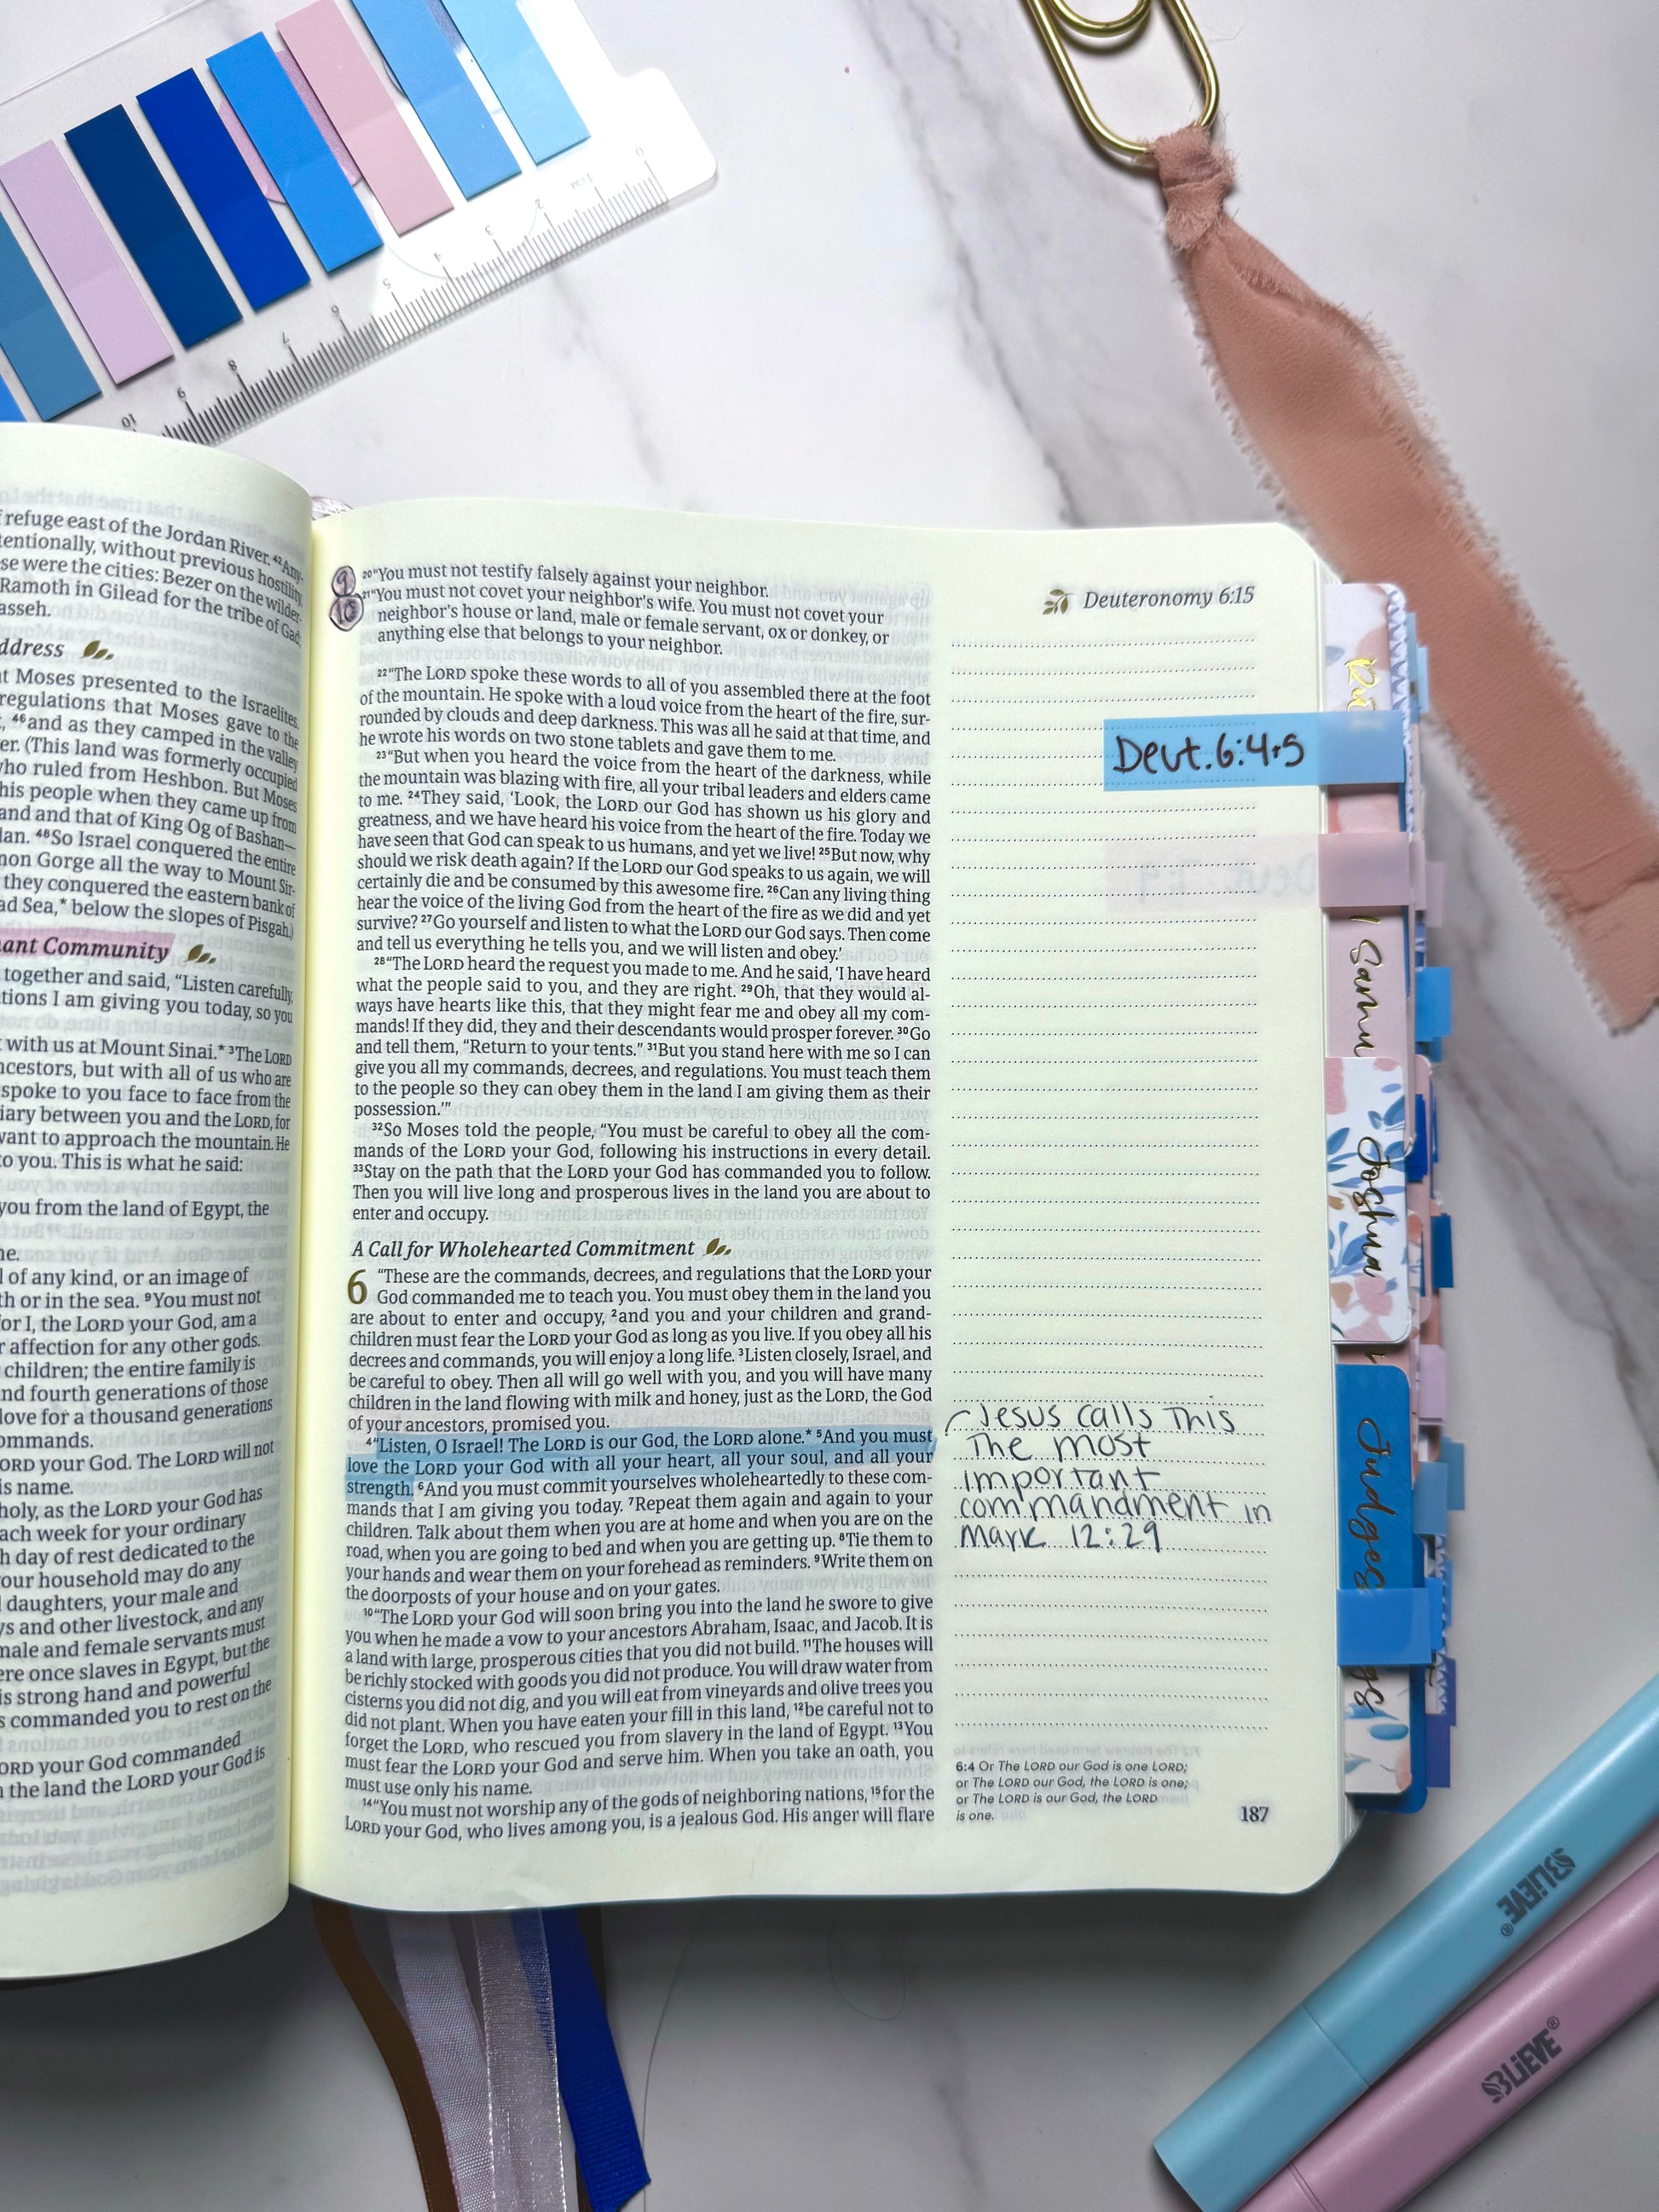 0
1
2
3
4
5
6
7
8
9
10
refuge east of the Jordan River. ⁴²Any-
tentionally, without previous hostility,
se were the cities: Bezer on the wilder-
Ramoth in Gilead for the tribe of Gad;
asseh.
ddress
t Moses presented to the Israelites
regulations that Moses gave to the
, ⁴⁶and as they camped in the valley
er. (This land was formerly occupied
who ruled from Heshbon. But Moses
his people when they came up from
and and that of King Og of Bashan—
dan. ⁴⁸So Israel conquered the entire
non Gorge all the way to Mount Sir-
they conquered the eastern bank of
ad Sea,* below the slopes of Pisgah.)
nant Community
together and said, “Listen carefully,
tions I am giving you today, so you
with us at Mount Sinai.* ³The LORD
ncestors, but with all of us who are
spoke to you face to face from the
iary between you and the LORD, for
want to approach the mountain. He
to you. This is what he said:
you from the land of Egypt, the
me.
l of any kind, or an image of
th or in the sea. ⁹You must not
for I, the LORD your God, am a
r affection for any other gods.
children; the entire family is
nd fourth generations of those
love for a thousand generations
ommands.
ORD your God. The LORD will not
is name.
holy, as the LORD your God has
ach week for your ordinary
h day of rest dedicated to the
our household may do any
daughters, your male and
ys and other livestock, and any
male and female servants must
ere once slaves in Egypt, but the
is strong hand and powerful
s commanded you to rest on the
ORD your God commanded
n the land the LORD your God is
9
10
²⁰“You must not testify falsely against your neighbor.
²¹“You must not covet your neighbor’s wife. You must not covet your
neighbor’s house or land, male or female servant, ox or donkey, or
anything else that belongs to your neighbor.
²²“The LORD spoke these words to all of you assembled there at the foot
of the mountain. He spoke with a loud voice from the heart of the fire, sur-
rounded by clouds and deep darkness. This was all he said at that time, and
he wrote his words on two stone tablets and gave them to me.
²³“But when you heard the voice from the heart of the darkness, while
the mountain was blazing with fire, all your tribal leaders and elders came
to me. ²⁴They said, ‘Look, the LORD our God has shown us his glory and
greatness, and we have heard his voice from the heart of the fire. Today we
have seen that God can speak to us humans, and yet we live! ²⁵But now, why
should we risk death again? If the LORD our God speaks to us again, we will
certainly die and be consumed by this awesome fire. ²⁶Can any living thing
hear the voice of the living God from the heart of the fire as we did and yet
survive? ²⁷Go yourself and listen to what the LORD our God says. Then come
and tell us everything he tells you, and we will listen and obey.’
²⁸“The LORD heard the request you made to me. And he said, ‘I have heard
what the people said to you, and they are right. ²⁹Oh, that they would al-
ways have hearts like this, that they might fear me and obey all my com-
mands! If they did, they and their descendants would prosper forever. ³⁰Go
and tell them, “Return to your tents.” ³¹But you stand here with me so I can
give you all my commands, decrees, and regulations. You must teach them
to the people so they can obey them in the land I am giving them as their
possession.’”
³²So Moses told the people, “You must be careful to obey all the com-
mands of the LORD your God, following his instructions in every detail.
³³Stay on the path that the LORD your God has commanded you to follow.
Then you will live long and prosperous lives in the land you are about to
enter and occupy.
A Call for Wholehearted Commitment
6 “These are the commands, decrees, and regulations that the LORD your
God commanded me to teach you. You must obey them in the land you
are about to enter and occupy, ²and you and your children and grand-
children must fear the LORD your God as long as you live. If you obey all his
decrees and commands, you will enjoy a long life. ³Listen closely, Israel, and
be careful to obey. Then all will go well with you, and you will have many
children in the land flowing with milk and honey, just as the LORD, the God
of your ancestors, promised you.
⁴“Listen, O Israel! The LORD is our God, the LORD alone.* ⁵And you must
love the LORD your God with all your heart, all your soul, and all your
strength. ⁶And you must commit yourselves wholeheartedly to these com-
mands that I am giving you today. ⁷Repeat them again and again to your
children. Talk about them when you are at home and when you are on the
road, when you are going to bed and when you are getting up. ⁸Tie them to
your hands and wear them on your forehead as reminders. ⁹Write them on
the doorposts of your house and on your gates.
¹⁰“The LORD your God will soon bring you into the land he swore to give
you when he made a vow to your ancestors Abraham, Isaac, and Jacob. It is
a land with large, prosperous cities that you did not build. ¹¹The houses will
be richly stocked with goods you did not produce. You will draw water from
cisterns you did not dig, and you will eat from vineyards and olive trees you
did not plant. When you have eaten your fill in this land, ¹²be careful not to
forget the LORD, who rescued you from slavery in the land of Egypt. ¹³You
must fear the LORD your God and serve him. When you take an oath, you
must use only his name.
¹⁴“You must not worship any of the gods of neighboring nations, ¹⁵for the
LORD your God, who lives among you, is a jealous God. His anger will flare
Deuteronomy 6:15
Deut. 6:4+5
Jesus calls This
The most
important
commandment in
Mark 12:29
6:4 Or The LORD our God is one LORD;
or The LORD our God, the LORD is one;
or The LORD is our God, the LORD
is one.
187
1 Samu
Joshua
Judges
gs
BLiEVE®
BLiEVE®